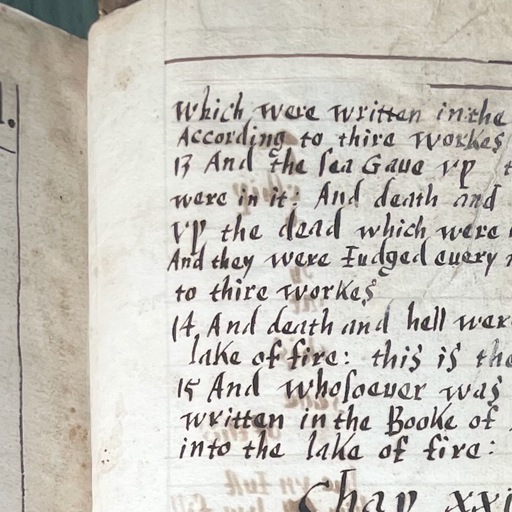 which were written in the
According to thire workes
13 And the sea Gaue vp
were in it: And death and
vp the dead which were
And they were Iudged euery
to thire workes
14 And death and hell wer
lake of fire: this is the
15 And whosoeuer was
written in the Booke of
into the lake of fire:
Chap xxi